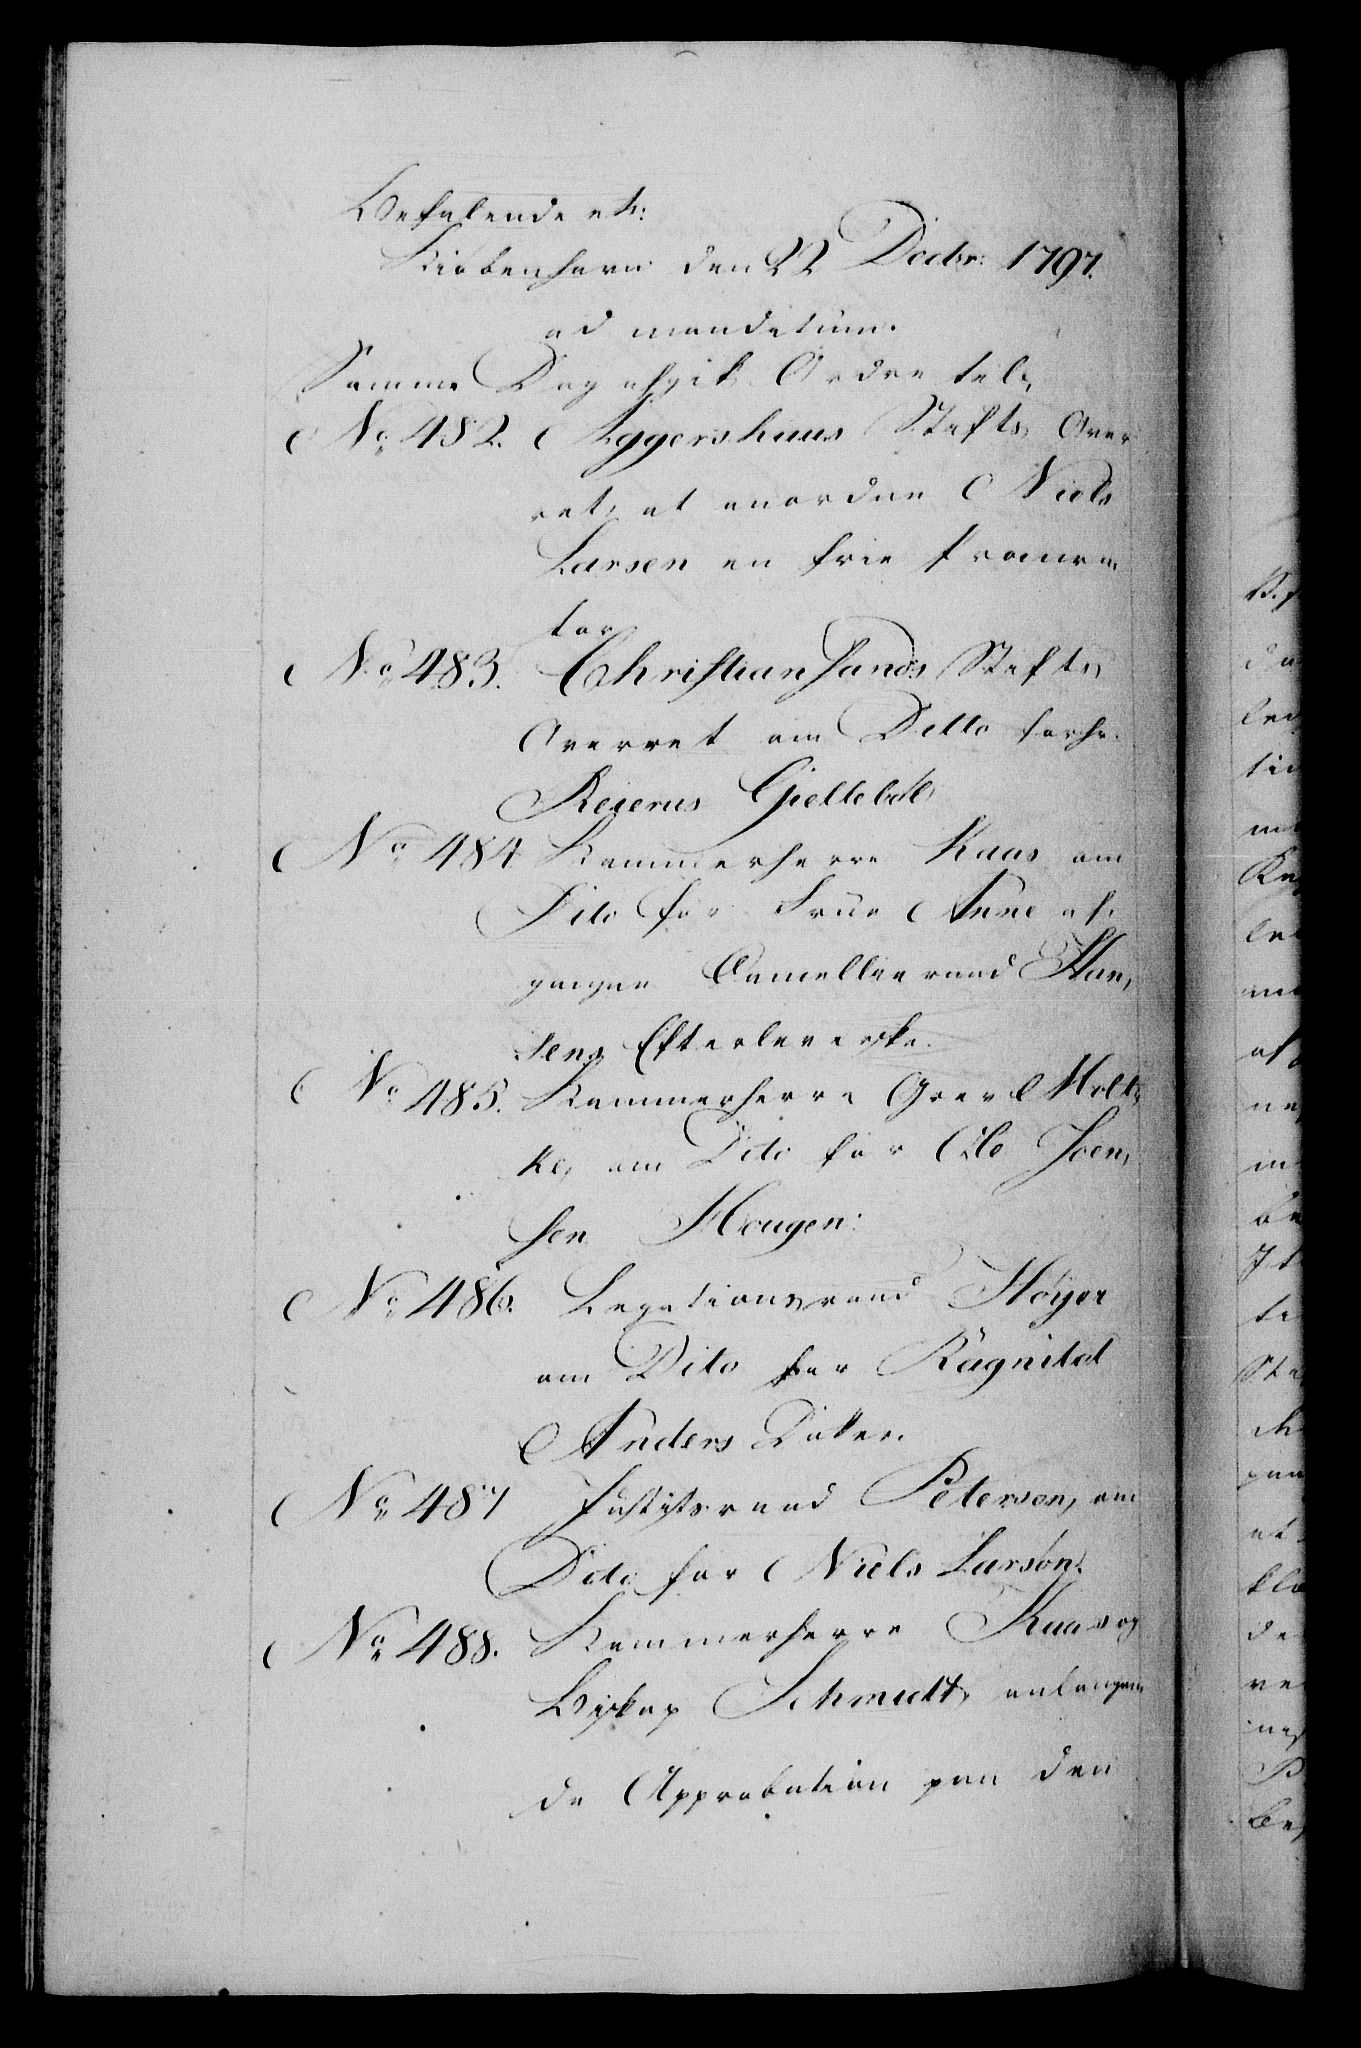 Befalende etc:
Kiøbenhavn den 22 Decbr: 1797.
ad mandatum.
Samme Dag afgik Ordre til,
No 482. Aggershuus Stifts Over
ret, at anordne Niels
Larsen en frie Procura
tor
No 483. Christiansands Stifts
Overret om Ditto for Hr.
Reierus Gjellebøl
No 484 Kammerherre Kaas om
Dito for Frue Anne af
gangne Cancellieraad Han,
sens Efterleverske.
No 485. Kammerherre Grev Molt,
ke, om Dito for Ole Joen,
sen Hougen:
No 486. Legationsraad Høyer
om Dito for Ragnild
Anders Datter.
No 487 Justitsraad Petersen, om
Dito for Niels Larsen.
No 488. Kammerherre Kaas og
Biskop Schmidt, anlangen
de Approbation paa den